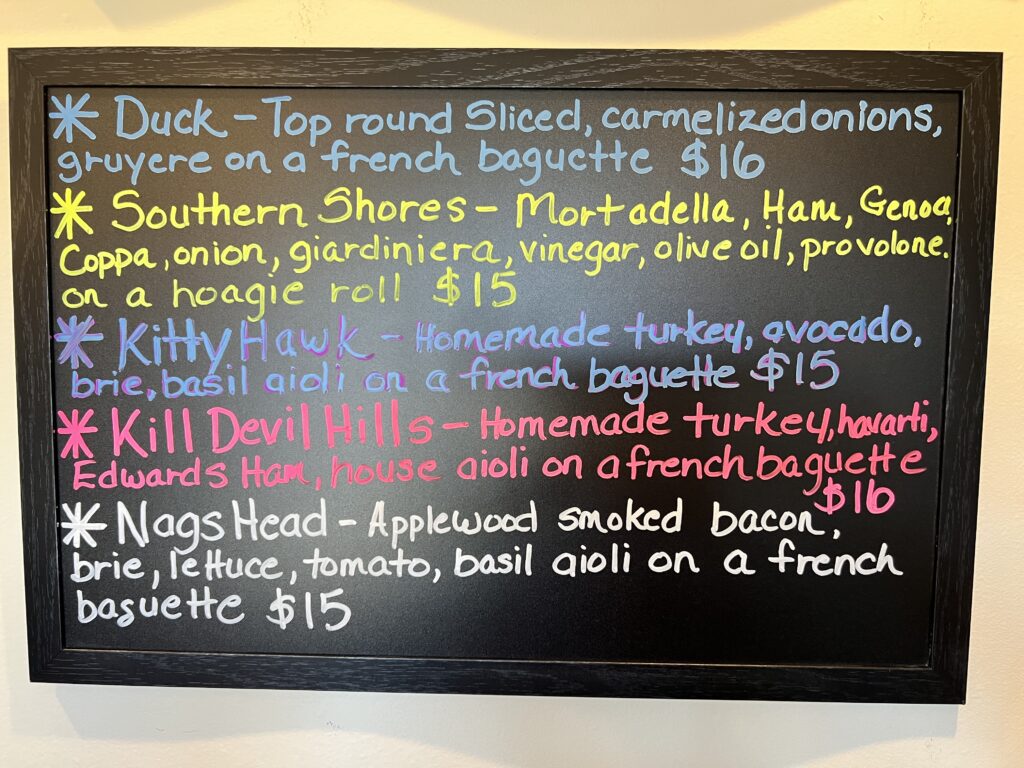 * Duck - Top round Sliced, carmelized onions,
gruyere on a french baguette $16
* Southern Shores - Mortadella, Ham, Genoa,
Coppa, onion, giardiniera, vinegar, olive oil, provolone.
on a hoagie roll $15
* Kitty Hawk - Homemade turkey, avocado,
brie, basil aioli on a french baguette $15
* Kill Devil Hills - Homemade turkey, havarti,
Edwards Ham, house aioli on a french baguette
$16
* Nags Head - Applewood smoked bacon,
brie, lettuce, tomato, basil aioli on a french
baguette $15